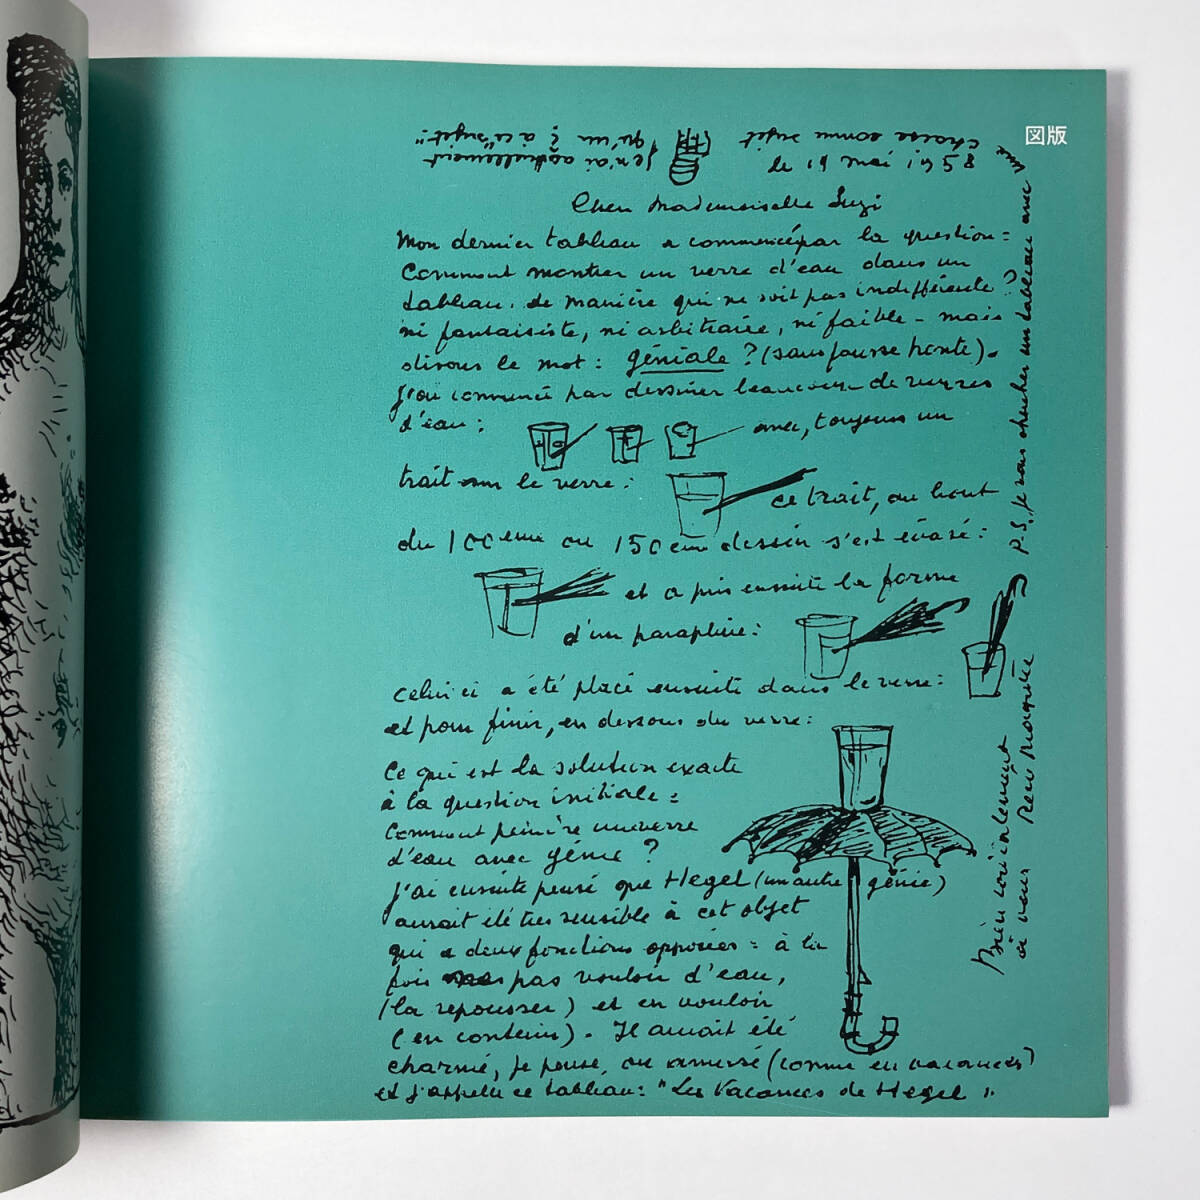 図版
le 19 mai 1958
Cher Mademoiselle Suzi
Mon dernier tableau a commencé par la question :
Comment montrer un verre d'eau dans un
tableau. de manière qui ne soit pas indifférente ?
ni fantaisiste, ni arbitraire, ni faible - mais
disons le mot : géniale ? (sans fausse honte).
J'ai commencé par dessiner beaucoup de verres
d'eau :
avec, toujours un
trait sur le verre :
ce trait, au bout
du 100ème ou 150ème dessin s'est évasé :
et a pris ensuite la forme
d'un parapluie :
celui ci a été placé ensuite dans le verre :
et pour finir, en dessous du verre :
Ce qui est la solution exacte
à la question initiale :
Comment peindre un verre
d'eau avec génie ?
J'ai ensuite pensé que Hegel (un autre génie)
aurait été très sensible à cet objet
qui a deux fonctions opposées : à la
fois pas vouloir d'eau,
(la repousser) et en vouloir
(en contenir). Il aurait été
charmé, je pense, ou amusé (comme en vacances)
et j'appelle ce tableau : "Les Vacances de Hegel".
Bien cordialement
à vous René Magritte
P.S. Je vais chercher un tableau avec une
chaise comme sujet
Je n'ai actuellement
qu'un ? à ce sujet"